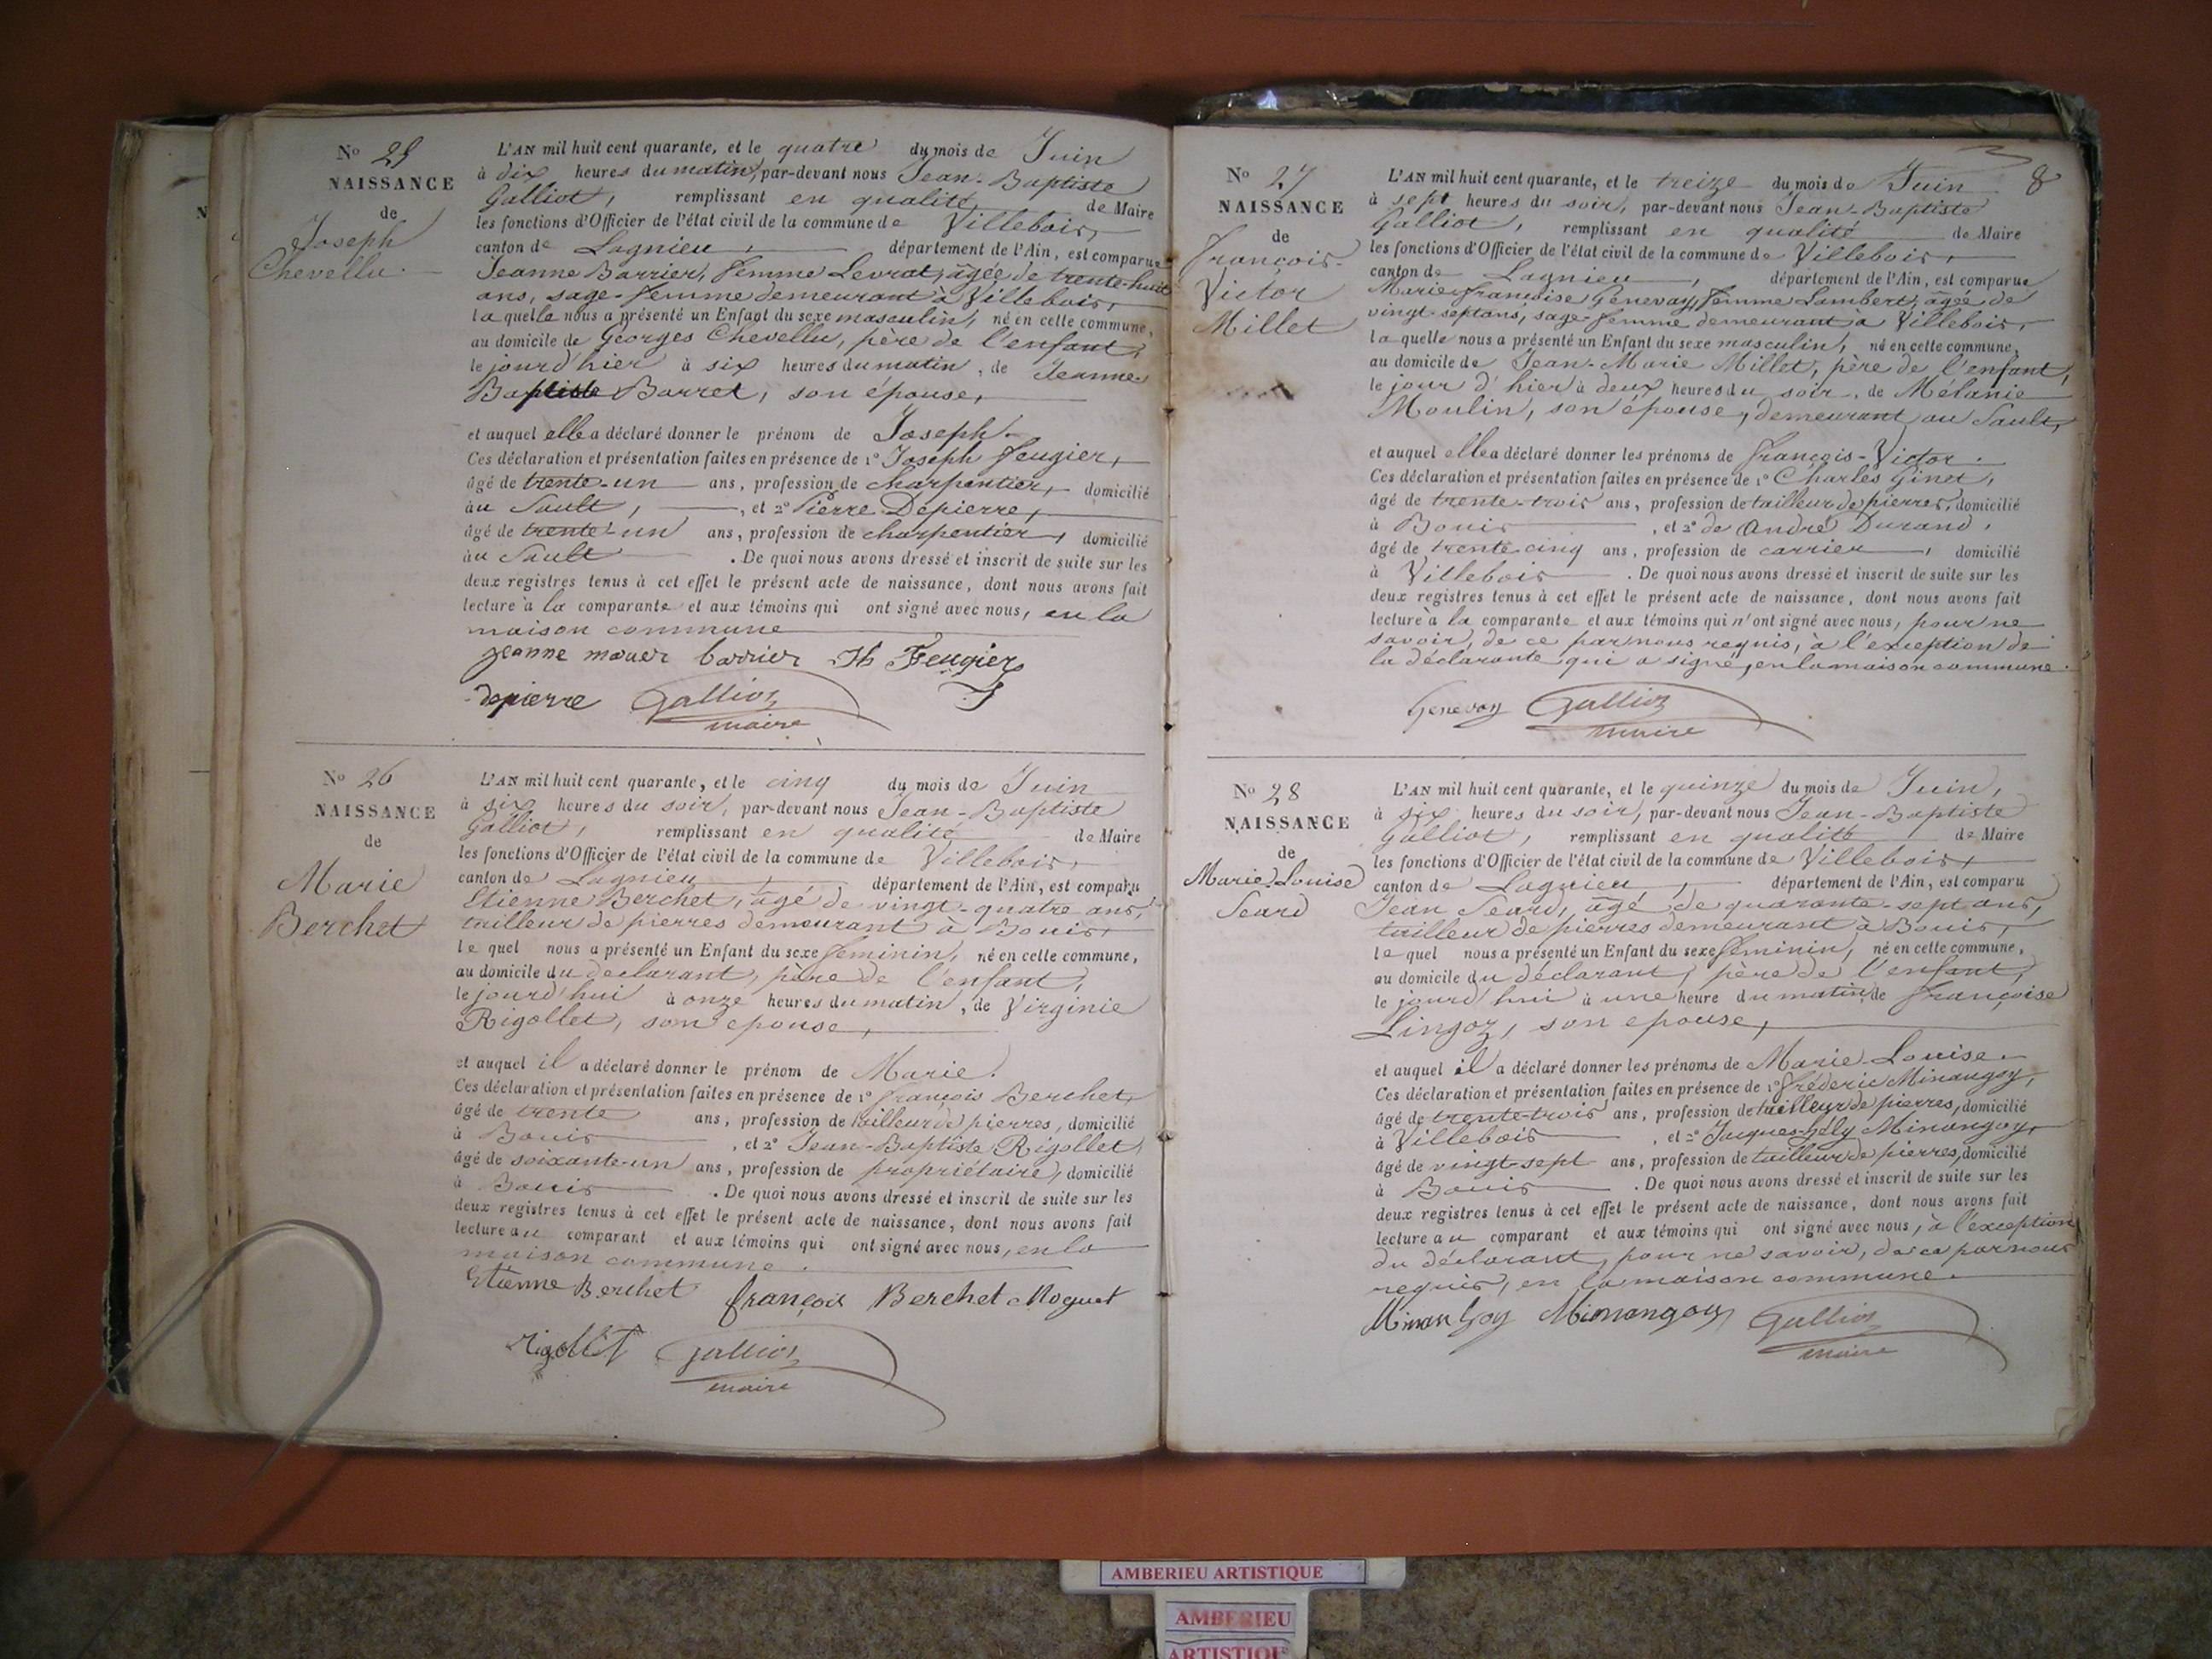 No 25
NAISSANCE
de
Joseph
Chevellu.
L'AN mil huit cent quarante, et le quatre du mois de Juin
à dix heures du matin, par-devant nous Jean-Baptiste
Galliot, remplissant en qualité de Maire
les fonctions d'Officier de l'état civil de la commune de Villebois,
canton de Lagnieu, département de l'Ain, est comparue
Jeanne Barrier, femme Levrat, âgée de trente-huit
ans, sage-femme demeurant à Villebois,
la quelle nous a présenté un Enfant du sexe masculin, né en cette commune,
au domicile de Georges Chevellu, père de l'enfant,
le jour d'hier à six heures du matin, de Jeanne
Baptiste Barret, son épouse,
et auquel elle a déclaré donner le prénom de Joseph.
Ces déclaration et présentation faites en présence de 1º Joseph Feugier,
âgé de trente-un ans, profession de charpentier, domicilié
au Sault, , et 2º Pierre Depierre,
âgé de trente-un ans, profession de charpentier, domicilié
au Sault . De quoi nous avons dressé et inscrit de suite sur les
deux registres tenus à cet effet le présent acte de naissance, dont nous avons fait
lecture à la comparante et aux témoins qui ont signé avec nous, en la
maison commune
jeanne barrier Jh Feugier
depierre Galliot
maire
No 26
NAISSANCE
de
Marie
Berchet
L'AN mil huit cent quarante, et le cinq du mois de Juin
à six heures du soir, par-devant nous Jean-Baptiste
Galliot, remplissant en qualité de Maire
les fonctions d'Officier de l'état civil de la commune de Villebois,
canton de Lagnieu, département de l'Ain, est comparu
Etienne Berchet, âgé de vingt-quatre ans,
tailleur de pierres demeurant à Bouis,
le quel nous a présenté un Enfant du sexe féminin, né en cette commune,
au domicile du declarant, père de l'enfant,
le jourd'hui à onze heures du matin, de Virginie
Rigollet, son epouse,
et auquel il a déclaré donner le prénom de Marie.
Ces déclaration et présentation faites en présence de 1º françois Berchet,
âgé de trente ans, profession de tailleur de pierres, domicilié
à Bouis , et 2º Jean-Baptiste Rigollet,
âgé de soixante-un ans, profession de propriétaire, domicilié
à Bouis . De quoi nous avons dressé et inscrit de suite sur les
deux registres tenus à cet effet le présent acte de naissance, dont nous avons fait
lecture au comparant et aux témoins qui ont signé avec nous, en la
maison commune.
Etienne Berchet françois Berchet Moguet
rigollet Galliot
maire
8
No 27
NAISSANCE
de
François-
Victor
Millet
L'AN mil huit cent quarante, et le treize du mois de Juin
à sept heures du soir, par-devant nous Jean-Baptiste
Galliot, remplissant en qualité de Maire
les fonctions d'Officier de l'état civil de la commune de Villebois,
canton de Lagnieu, département de l'Ain, est comparue
Marie françoise Genevay, femme Lambert, âgée de
vingt-sept ans, sage-femme demeurant à Villebois,
la quelle nous a présenté un Enfant du sexe masculin, né en cette commune,
au domicile de Jean-Marie Millet, père de l'enfant,
le jour d'hier à deux heures du soir, de Mélanie
Moulin, son épouse, demeurant au Sault,
et auquel elle a déclaré donner les prénoms de françois-Victor.
Ces déclaration et présentation faites en présence de 1º Charles Ginet,
âgé de trente-trois ans, profession de tailleur de pierres, domicilié
à Bouis , et 2º de André Durand,
âgé de trente-cinq ans, profession de carrier, domicilié
à Villebois . De quoi nous avons dressé et inscrit de suite sur les
deux registres tenus à cet effet le présent acte de naissance, dont nous avons fait
lecture à la comparante et aux témoins qui n'ont signé avec nous, pour ne
savoir, de ce par nous requis, à l'exception de
la déclarante qui a signé, en la maison commune.
Genevay Galliot
maire
No 28
NAISSANCE
de
Marie-Louise
Seard
L'AN mil huit cent quarante, et le quinze du mois de Juin,
à six heures du soir, par-devant nous Jean-Baptiste
Galliot, remplissant en qualité de Maire
les fonctions d'Officier de l'état civil de la commune de Villebois,
canton de Lagnieu, département de l'Ain, est comparu
Jean Seard, âgé de quarante-sept ans,
tailleur de pierres demeurant à Bouis,
le quel nous a présenté un Enfant du sexe féminin, né en cette commune,
au domicile du déclarant, père de l'enfant,
le jourd'hui à une heure du matin de françoise
Lingoz, son epouse,
et auquel il a déclaré donner les prénoms de Marie-Louise.
Ces déclaration et présentation faites en présence de 1º fréderic Minangoy,
âgé de trente-trois ans, profession de tailleur de pierres, domicilié
à Villebois , et 2º Jacques Minangoy,
âgé de vingt-sept ans, profession de tailleur de pierres, domicilié
à Bouis . De quoi nous avons dressé et inscrit de suite sur les
deux registres tenus à cet effet le présent acte de naissance, dont nous avons fait
lecture au comparant et aux témoins qui ont signé avec nous, à l'exception
du déclarant, pour ne savoir, de ce par nous
requis, en la maison commune.
Minangoy Minangoy Galliot
maire
AMBERIEU ARTISTIQUE
AMBERIEU
ARTISTIQUE